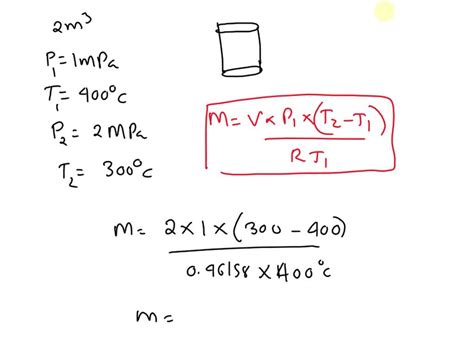 2m³
P₁=1mPa
T₁=400°c
P₂= 2MPa
T₂= 300°c
M= V×P₁×(T₂-T₁)
RT₁
m= 2×1×(300-400)
0.46158×400°c
m=